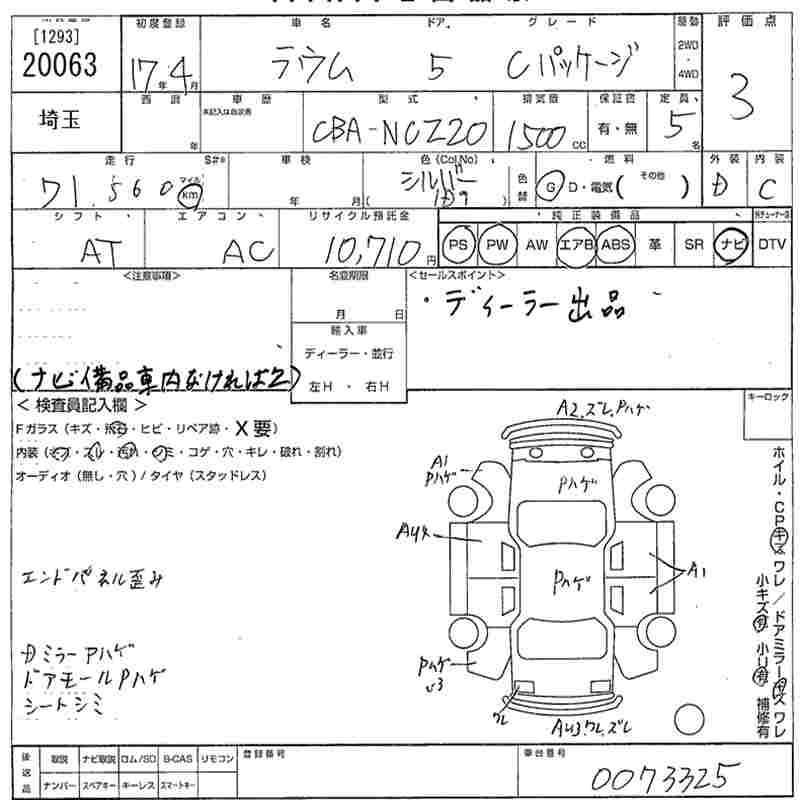 [1293]
20063
初度登録
17年4月
車名
ラウム
ドア
5
グレード
Cパッケージ
2WD
・
4WD
評価点
3
埼玉
年
車歴
未記入は自家用
型式
CBA-NCZ20
排気量
1500 CC
保証書
有・無
定員
5名
走行
71.560
マイル
km
S#*
車検
年 月
色(Col.No)
シルバー
( 1D9
色替
燃料
G D・電気( その他 )
外装
D
内装
C
シフト
AT
エアコン
AC
リサイクル預託金
10,710円
純正装備品
PS PW AW エアB ABS 革 SR ナビ
DTV
<注意事項>
(ナビ備品車内なければ乙)
名変期限
月 日
輸入車
ディーラー・並行
左H ・ 右H
<セールスポイント>
・ディーラー出品
キーロック
< 検査員記入欄 >
Fガラス(キズ・飛石・ヒビ・リペア跡・X要)
内装(キズ・スレ・汚れ・シミ・コゲ・穴・キレ・破れ・割れ)
オーディオ(無し・穴)/タイヤ(スタッドレス)
エンドパネル歪み
Dミラー Pハゲ
ドアモールPハゲ
シートシミ
A2.ズレ.Pハゲ
A1
Pハゲ
Pハゲ
AU4
Pハゲ
A1
Pハゲ
U3
ワレ
AU3.ワレ.ズレ
ホイル・CPキズ ワレ/ドアミラーキズ ワレ
小キズ有 小U有 補修有
後送品
取説 ナビ取説 ロム/SD B-CAS リモコン
ナンバー スペアキー キーレス スマートキー
登録番号
車台番号
0073325